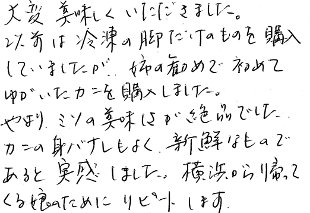 大変 美味しく いただきました。
以前は冷凍の脚だけのものを購入
していましたが、姉の勧めで初めて
ゆがいたカニを購入しました。
やはり、ミソの美味しさが絶品でした。
カニの身バナレもよく、新鮮なもので
あると実感しました。横浜から帰って
くる娘のために リピートします。